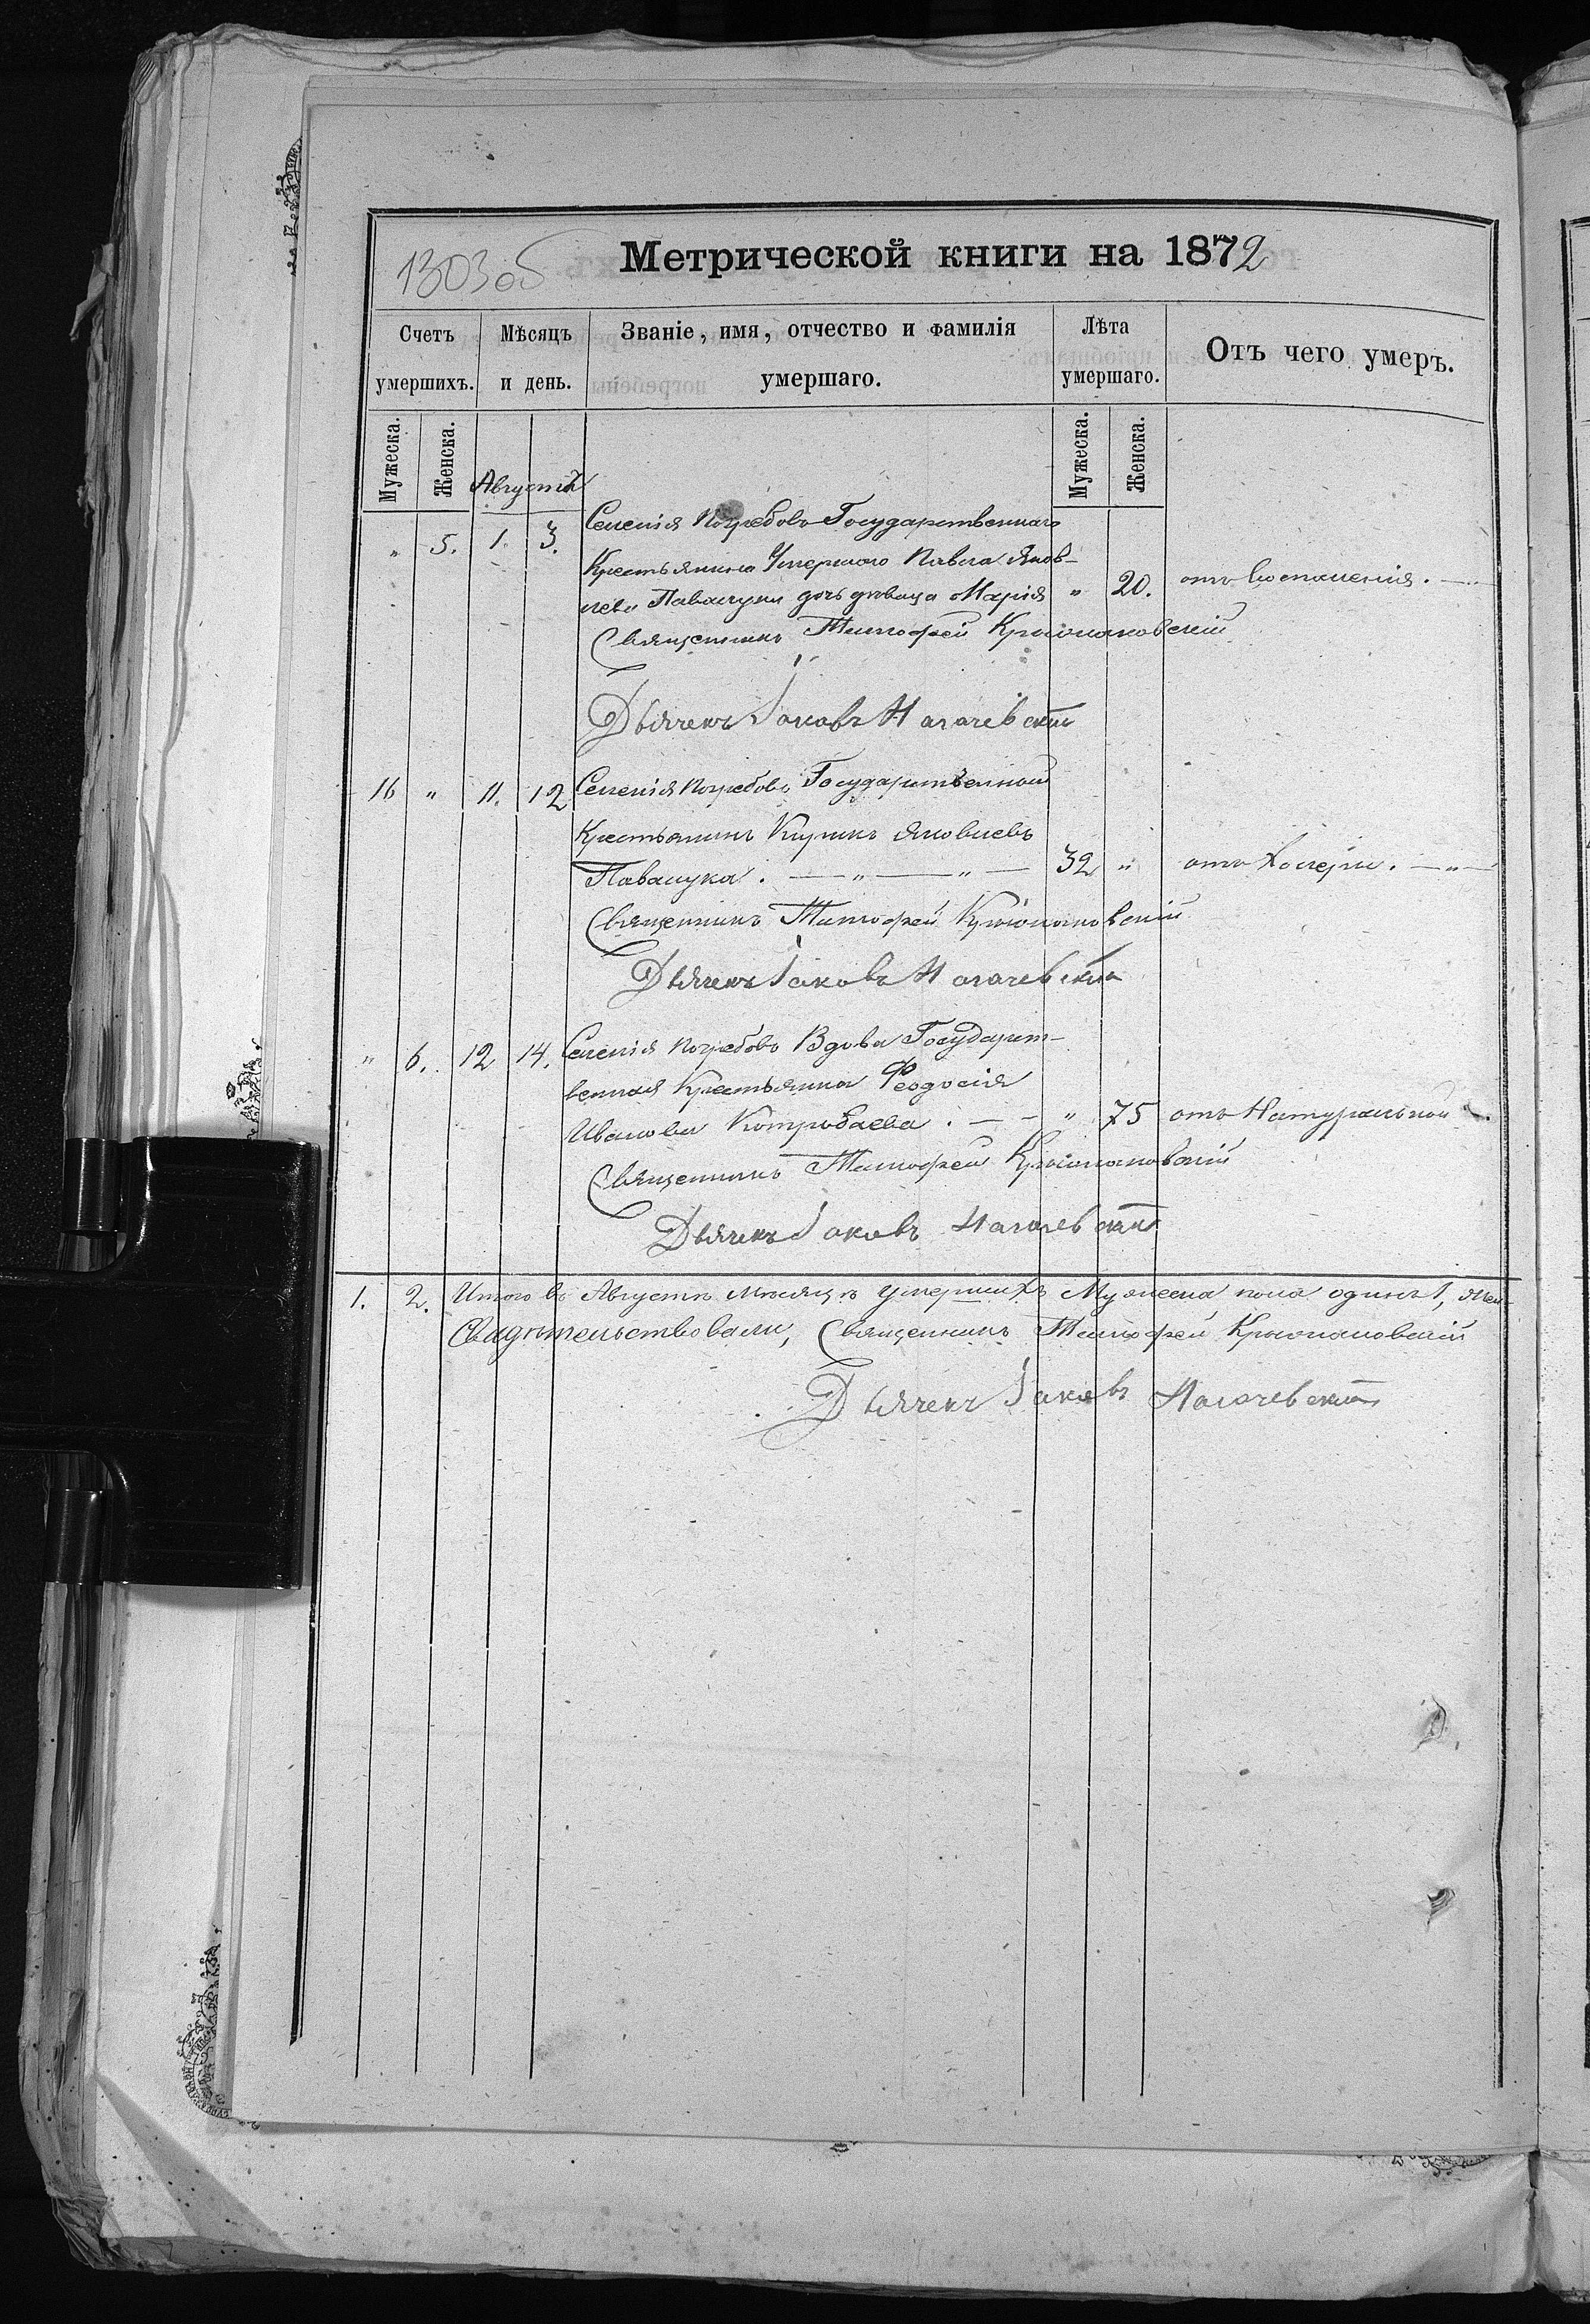 1303 об
Метрической книги на 1872
Счетъ умершихъ.
Мѣсяцъ и день.
Званіе, имя, отчество и фамилія умершаго.
Лѣта умершаго.
Отъ чего умеръ.
Мужеска.
Женска.
Мужеска.
Женска.
Августъ
" 5. 1. 3. Селенія Погребовъ Государственнаго
Крестьянина Умершого Павла Яков-
лева Павалуки дочь дѣвица Марія " 20. отъ воспаленія.
Священникъ Тимофей Крыжановскій
Дьячекъ Іаковъ Нагачевскій
16 " 11. 12 Селенія Погребовъ Государственной
Крестьянинъ Кирикъ Яковлевъ
Павалука. — " — " — 32 " отъ Холеры. — " —
Священникъ Тимофей Крыжановскій
Дьячекъ Іаковъ Нагачевскій
" 6. 12 14. Селенія Погребовъ Вдова Государст-
венная Крестьянка Феодосія
Иванова Котробаева. — — " 75 отъ Натуральной
Священникъ Тимофей Крыжановскій
Дьячекъ Іаковъ Нагачевскій
1. 2. Итого въ Августѣ мѣсяцѣ умершихъ Мужеска пола одинъ 1, жен-
Свидѣтельствовали, Священникъ Тимофей Крыжановскій
Дьячекъ Іаковъ Нагачевскій